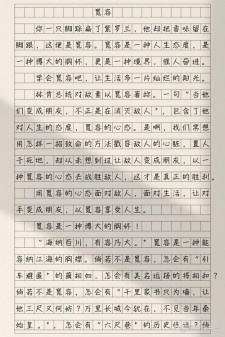 宽容
你一只脚踩扁了紫罗兰，他却把香味留在
脚跟，这便是宽容。宽容是一种人生态度，是
一种博大的胸怀，更是一种境界，催人奋进。
学会宽容吧，让生活多一片灿烂的阳光。
林肯总统对政敌以宽容著称，一句“当他
们变成朋友，不正是在消灭敌人”，包含了他
对人生的态度，宽容的心态。是啊，我们常想
用怎样一招致命的方法戳昏敌人的心脏，置人
于死地，却从未想到过让敌人变成朋友，以一
种宽容的心态去战胜敌人，这才是真正的胜利。
用宽容的心态面对敌人，面对生活，让对
手变成朋友，以宽容享受人生。
宽容是一种博大的胸怀！
“海纳百川，有容乃大。”宽容是一种能
容纳江海的胸襟。倘若不是宽容，怎会有“引
车避匿”的蔺相如，怎会有美名远扬的将相和？
倘若不是宽容，怎会有“千里家书只为墙，让
他三尺又何妨？万里长城今犹在，不见当年秦
始皇。”，怎会有“六尺巷”的历史佳话？倘